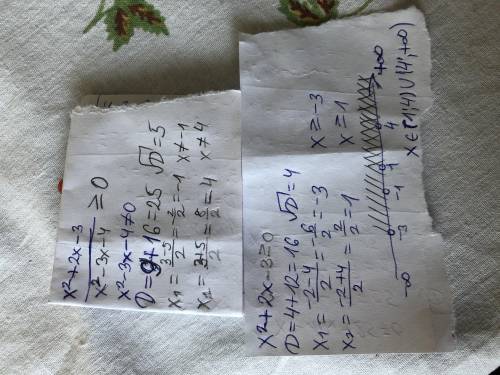 x²+2x-3
x²-3x-4 ≥0
x²-3x-4≠0
D=9+16=25 √D=5
x₁=3-5/2=-2/2=-1 x≠-1
x₂=3+5/2=8/2=4 x≠4
x²+2x-3≥0
D=4+12=16 √D=4
x₁=-2-4/2=-6/2=-3 x≥-3
x₂=-2+4/2=2/2=1 x≥1
-∞ -3 -1 1 4 +∞
x∈[1;4)∪(4;+∞)